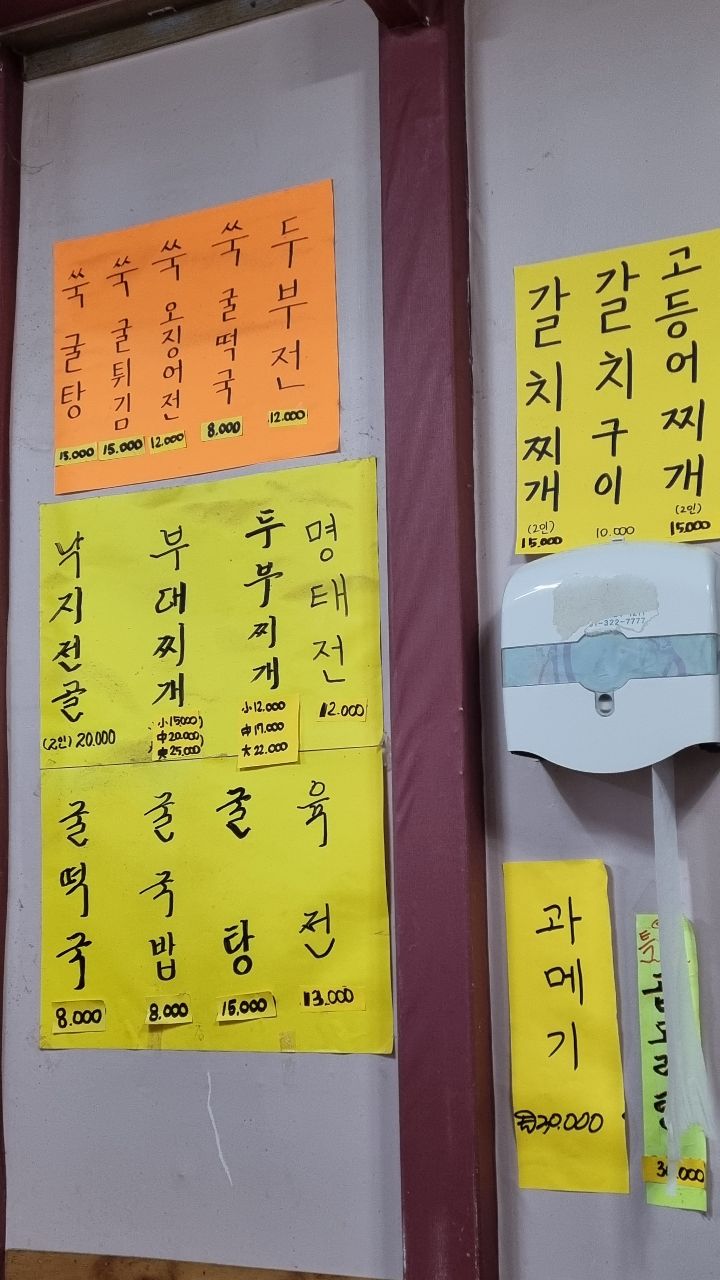 쑥 굴탕 15.000
쑥 굴튀김 15.000
쑥 오징어전 12.000
쑥 굴떡국 8.000
두부전 12.000
낙지전골 (2인) 20.000
부대찌개
小 15000)
中 20.000)
大 25.000)
두부찌개
小 12.000
中 17.000
大 22.000
명태전 12.000
굴떡국 8.000
굴국밥 8.000
굴탕 15,000
육전 13.000
갈치찌개
(2인)
15.000
갈치구이
10.000
고등어찌개
(2인)
15.000
322-7777
과메기
20.000
특